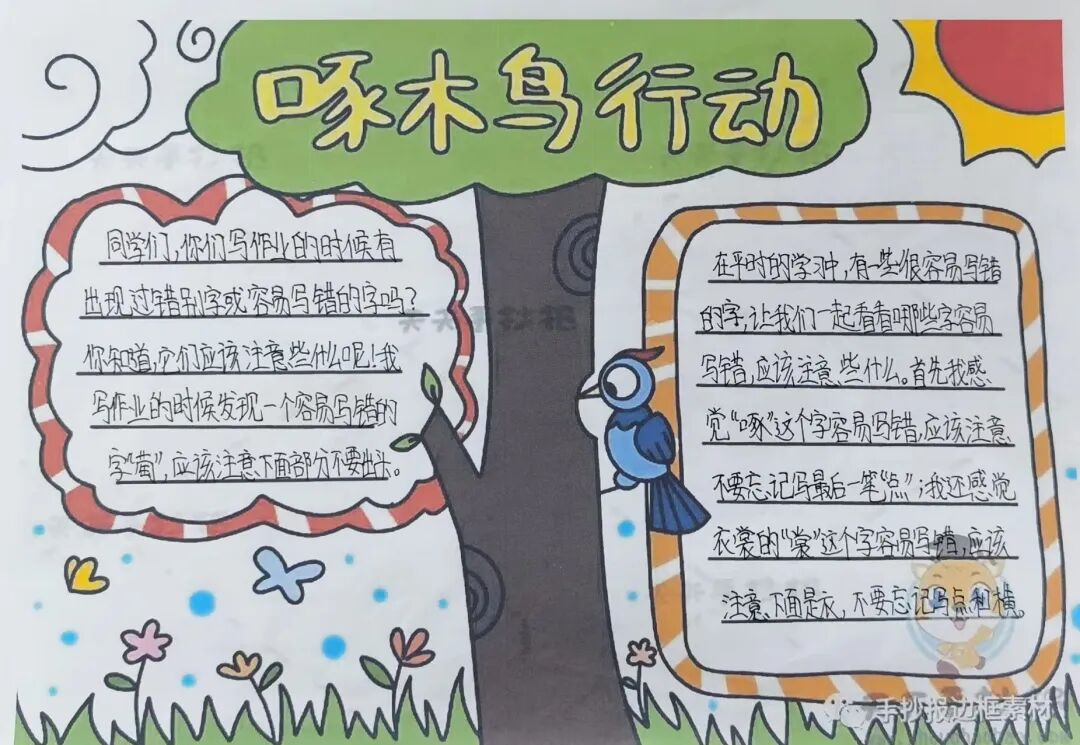 啄木鸟行动
同学们，你们写作业的时候有
出现过错别字或容易写错的字吗？
你知道，它们应该注意些什么呢！我
写作业的时候发现一个容易写错的
字“萄”，应该注意下面部分不要出头。
在平时的学习中，有一些很容易写错
的字，让我们一起看看哪些字容易
写错，应该注意些什么。首先我感
觉“啄”这个字容易写错，应该注意
不要忘记写最后一笔“点”；我还感觉
衣裳的“裳”这个字容易写错，应该
注意下面是衣，不要忘记写点和横。
手抄报边框素材